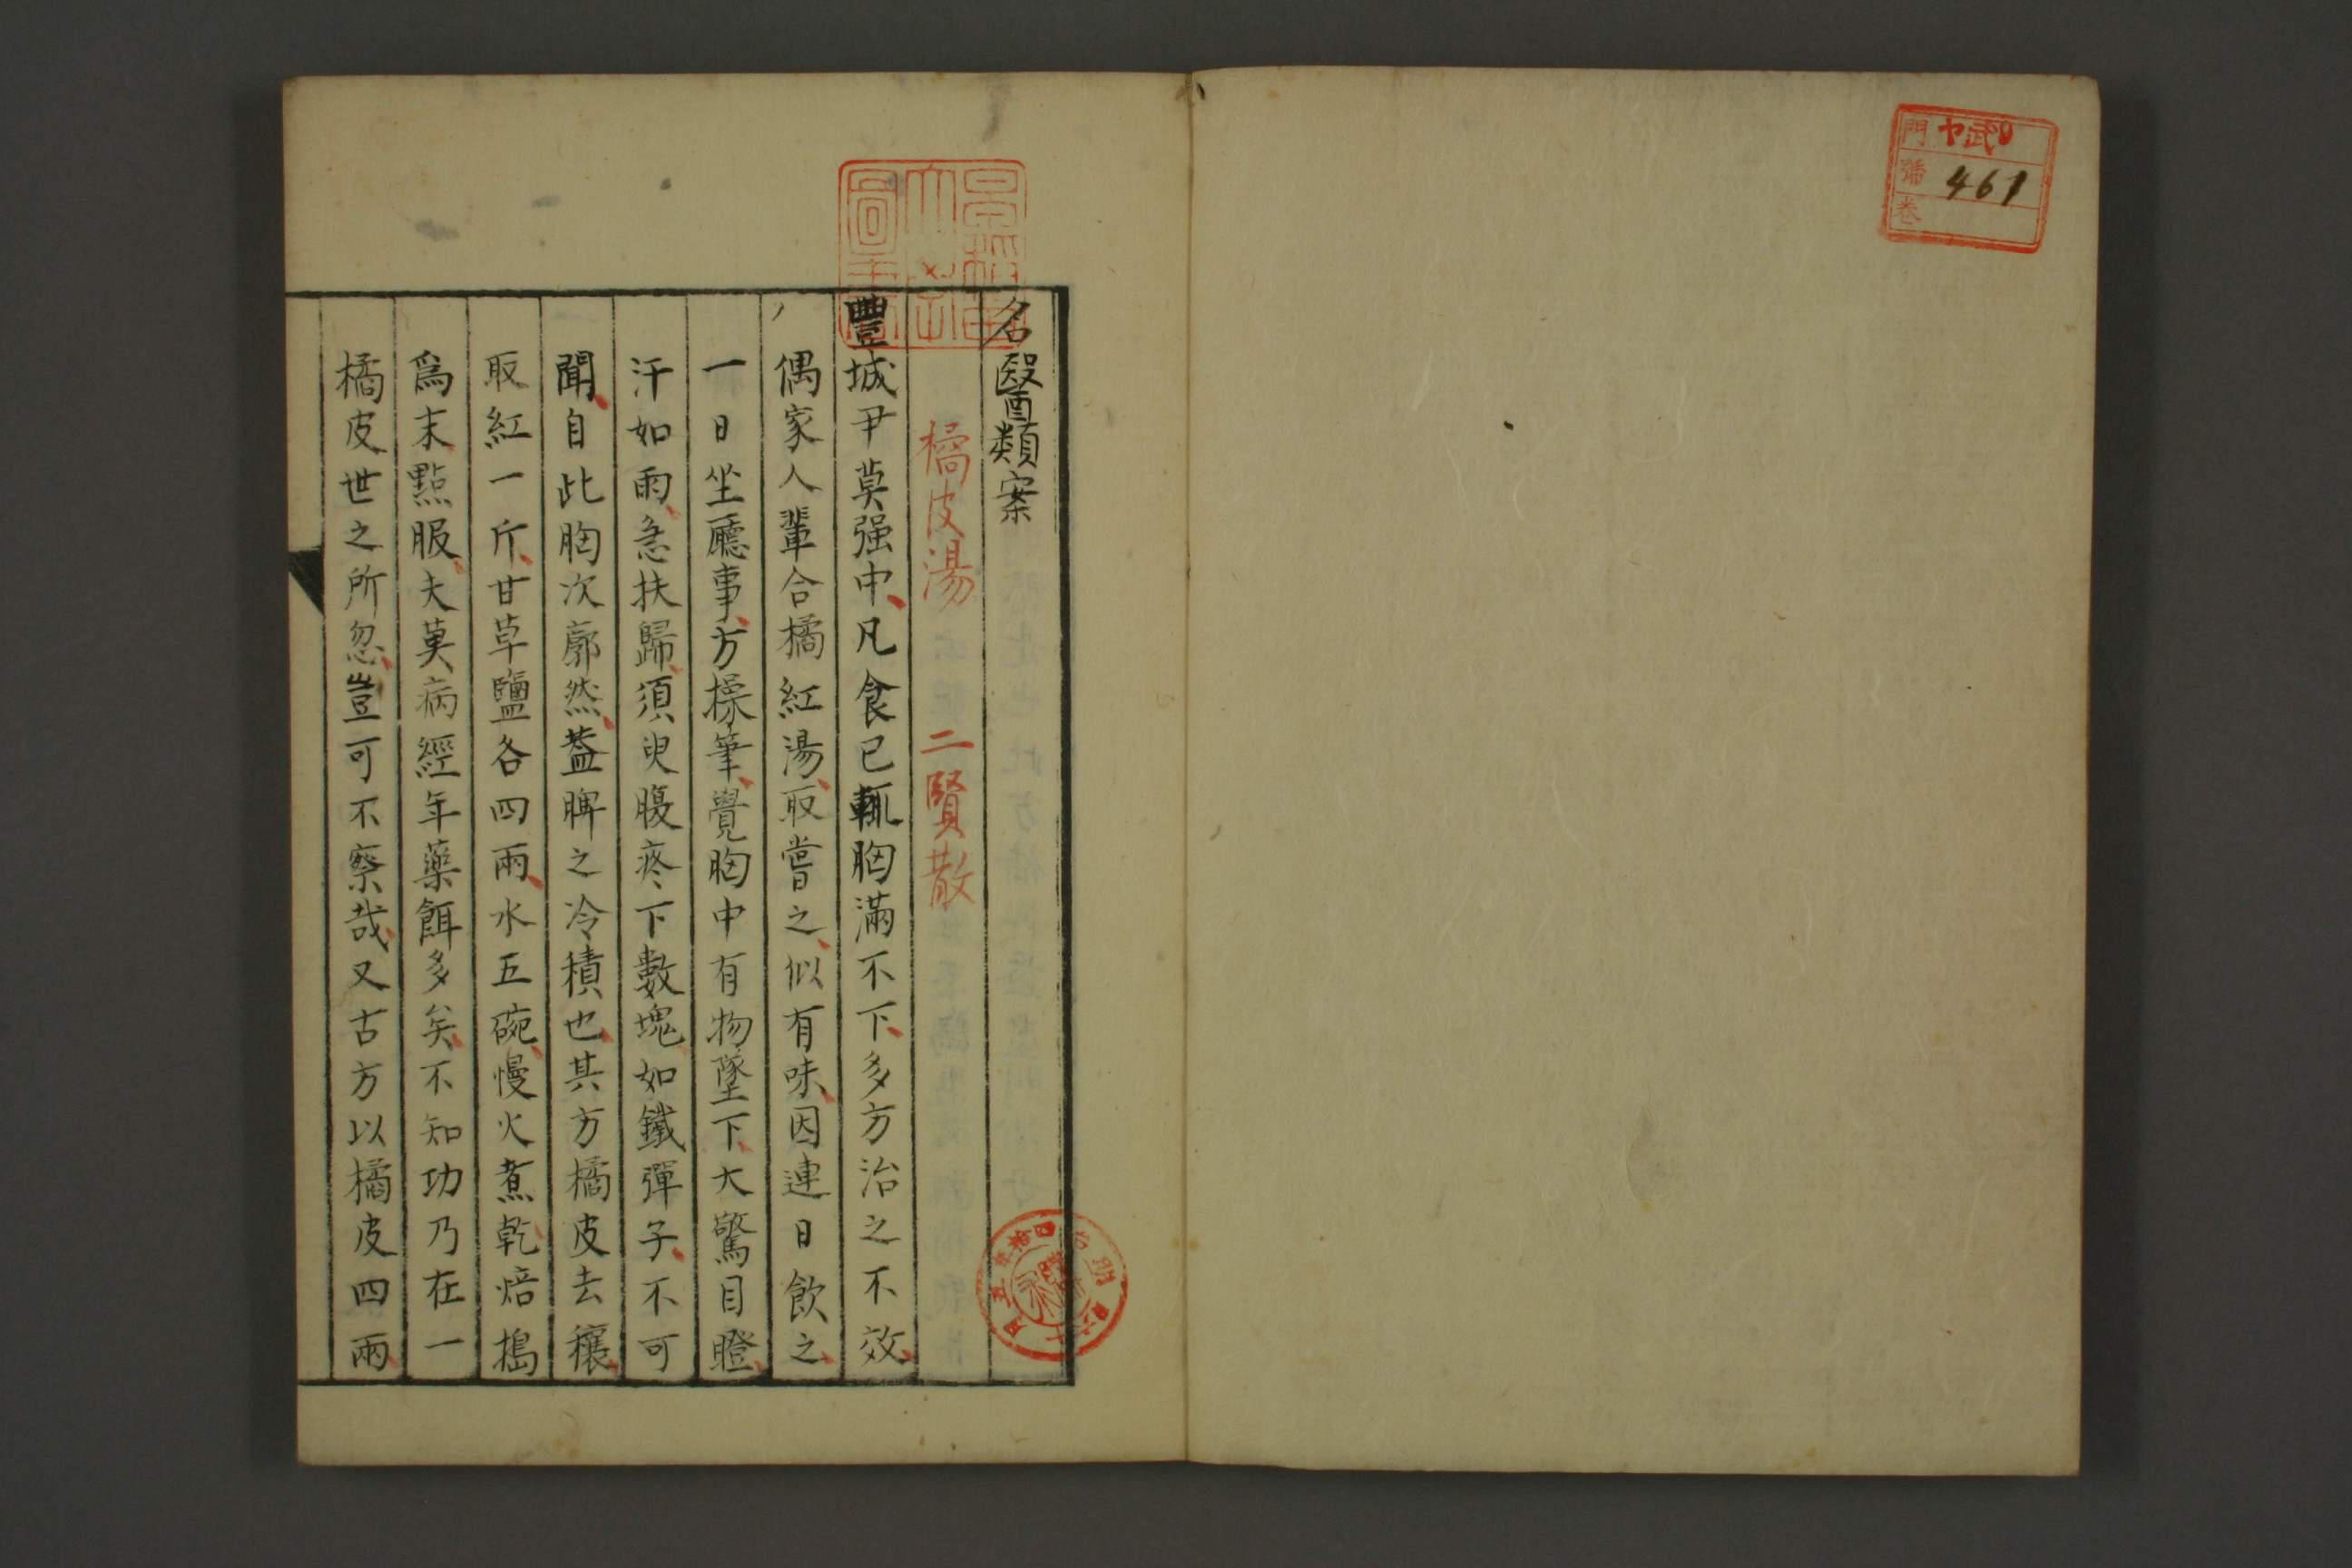 門
號 461
卷
名醫類案
橘皮湯 二賢散
豐城尹莫强中凡食已輒胸滿不下多方治之不效
偶家人輩合橘紅湯取嘗之似有味因連日飲之
一日坐廳事方操筆覺胸中有物墜下大驚目瞪
汗如雨急扶歸須臾腹疼下數塊如鐵彈子不可
聞自此胸次廓然葢脾之冷積也其方橘皮去穰
取紅一斤甘草鹽各四兩水五碗慢火煮乾焙搗
爲末點服夫莫病經年藥餌多矣不知功乃在一
橘皮世之所忽豈可不察哉又古方以橘皮四兩